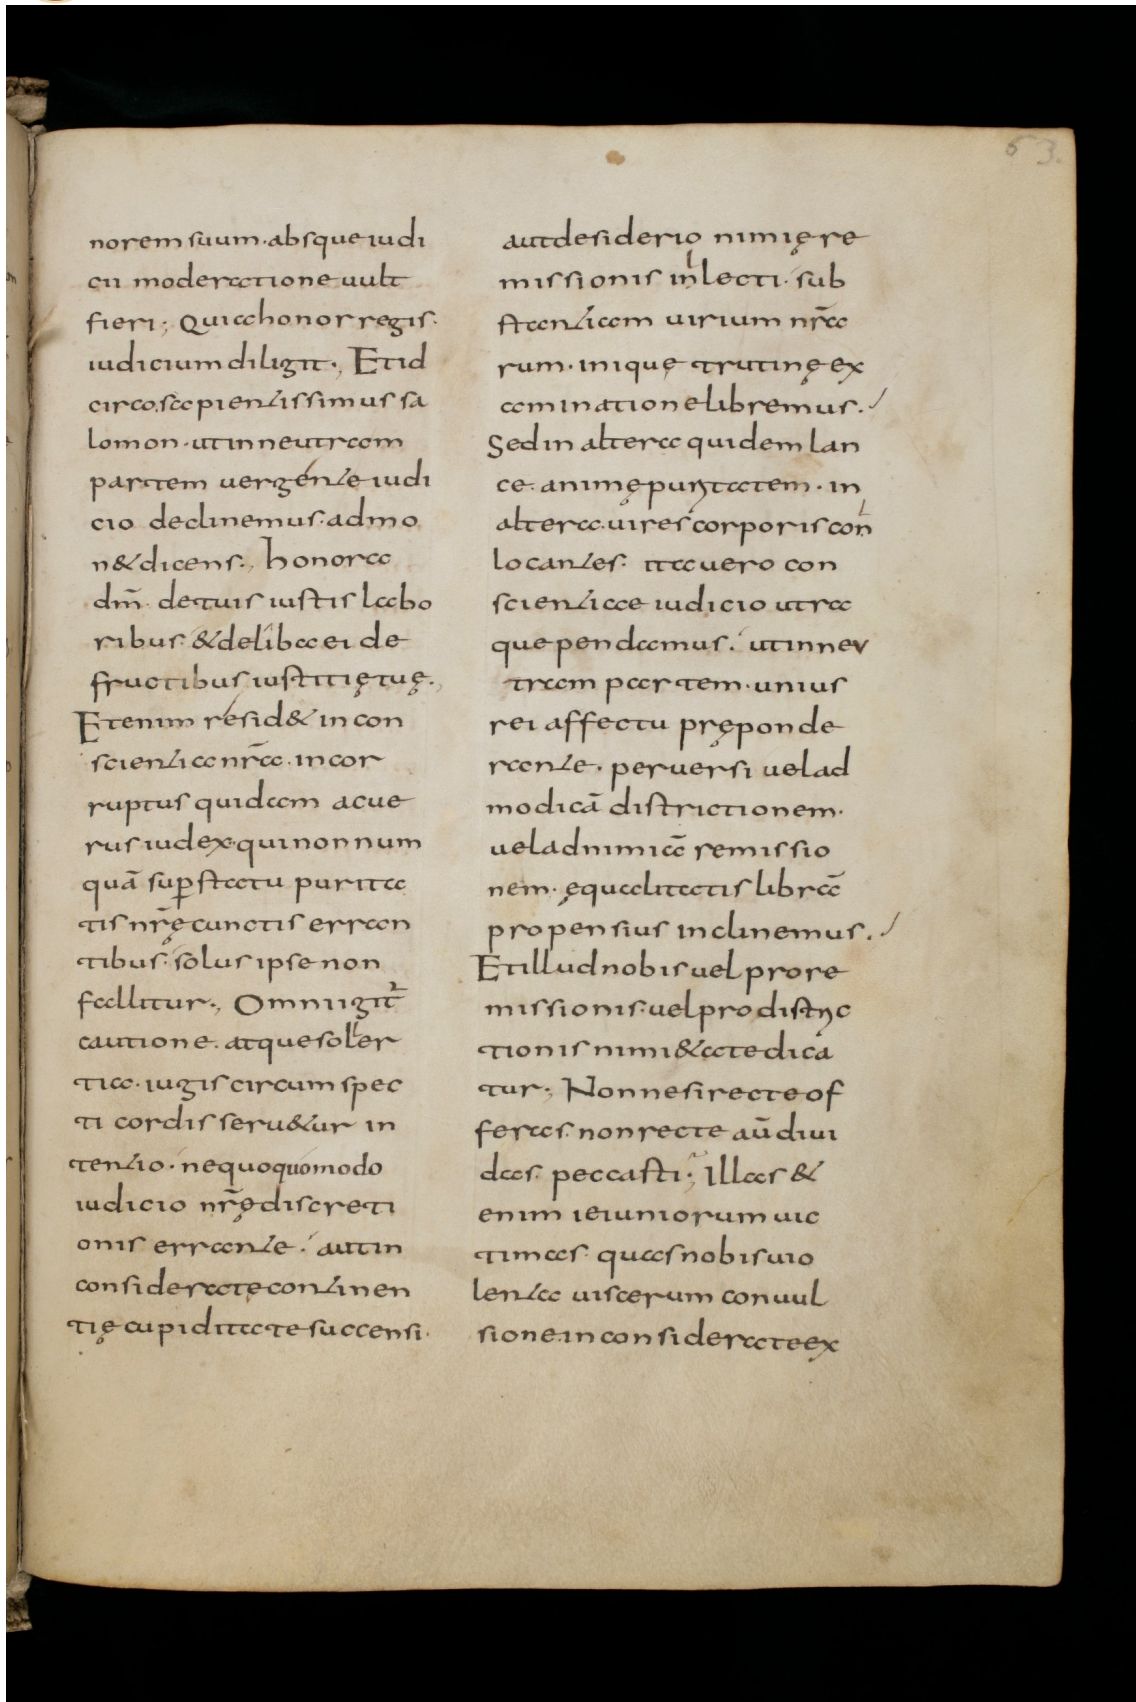 63.
norem suum· absque iudi
cii moderatione uult
fieri; Quia honor regis·
iudicium diligit·, Et id
circo sapientissimus sa
lomon· ut in neutram
partem uergente iudi
cio declinemus· admo
n&dicens·, honora
dm̄· de tuis iustis labo
ribus· & deliba ei de
fructibus iustitię tuę·,
Etenim resid& in con
scientia nr̄a· in cor
ruptus quidam ac ue
rus iudex· qui non num
quā sup̱ statu purita
tis nr̄ę cunctis erran
tibus· solus ipse non
fallitur·, Omni igit̄
cautione· atque soller
tia· iugis circumspec
ti cordis seru&ur in
tentio· ne quoquomodo
iudicio nr̄ę discreti
onis errante· aut in
considerate contin en
tię cupiditate succensi·
aut desiderio nimię re
missionis inlecti· sub
stantiam uirium nr̄a
rum· inique trutinę ex
aminatione libremus·
Sed in altera quidem lan
ce· animę puritatem· in
altera· uires corporis con
locantes· ita uero con
scientiae iudicio utra
que pendamus· ut in neu
tram partem· unius
rei affectu pręponde
rante· peruersi uel ad
modicā districtionem·
uel ad nimiā remissio
nem· ęqualitatis librā
propensius inclinemus·
Et illud nobis uel pro re
missionis· uel pro distric
tionis nimi&ate dica
tur·, Nonne si recte of
feras· non recte aū diui
das· peccasti·; Illas &
enim ieiuniorum uic
timas· quas nobis uio
lenta uiscerum conuul
sione· in considerate ex